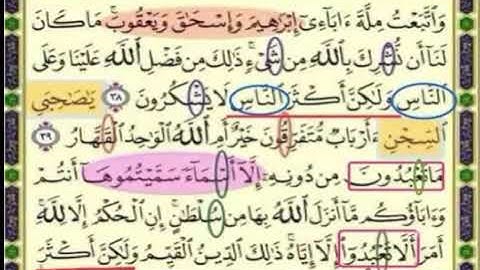 وَٱتَّبَعْتُ مِلَّةَ ءَابَآءِىٓ إِبْرَٰهِيمَ وَإِسْحَٰقَ وَيَعْقُوبَ ۚ مَا كَانَ
لَنَآ أَن نُّشْرِكَ بِٱللَّهِ مِن شَىْءٍ ۚ ذَٰلِكَ مِن فَضْلِ ٱللَّهِ عَلَيْنَا وَعَلَى
ٱلنَّاسِ وَلَٰكِنَّ أَكْثَرَ ٱلنَّاسِ لَا يَشْكُرُونَ ٣٨ يَٰصَٰحِبَىِ
ٱلسِّجْنِ ءَأَرْبَابٌ مُّتَفَرِّقُونَ خَيْرٌ أَمِ ٱللَّهُ ٱلْوَٰحِدُ ٱلْقَهَّارُ ٣٩
مَا تَعْبُدُونَ مِن دُونِهِۦٓ إِلَّآ أَسْمَآءً سَمَّيْتُمُوهَآ أَنتُمْ
وَءَابَآؤُكُم مَّآ أَنزَلَ ٱللَّهُ بِهَا مِن سُلْطَٰنٍ ۚ إِنِ ٱلْحُكْمُ إِلَّا لِلَّهِ ۚ
أَمَرَ أَلَّا تَعْبُدُوٓا۟ إِلَّآ إِيَّاهُ ۚ ذَٰلِكَ ٱلدِّينُ ٱلْقَيِّمُ وَلَٰكِنَّ أَكْثَرَ